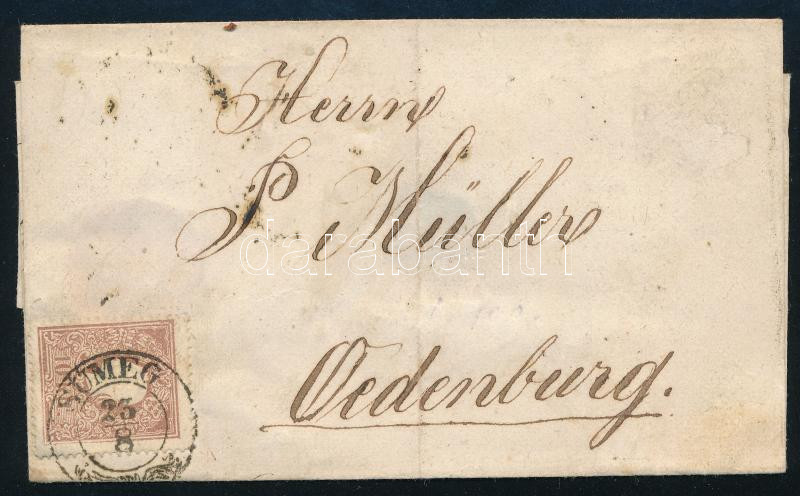 Herrn
P Müller
Oedenburg.
SÜMEG
23
8
darabanth